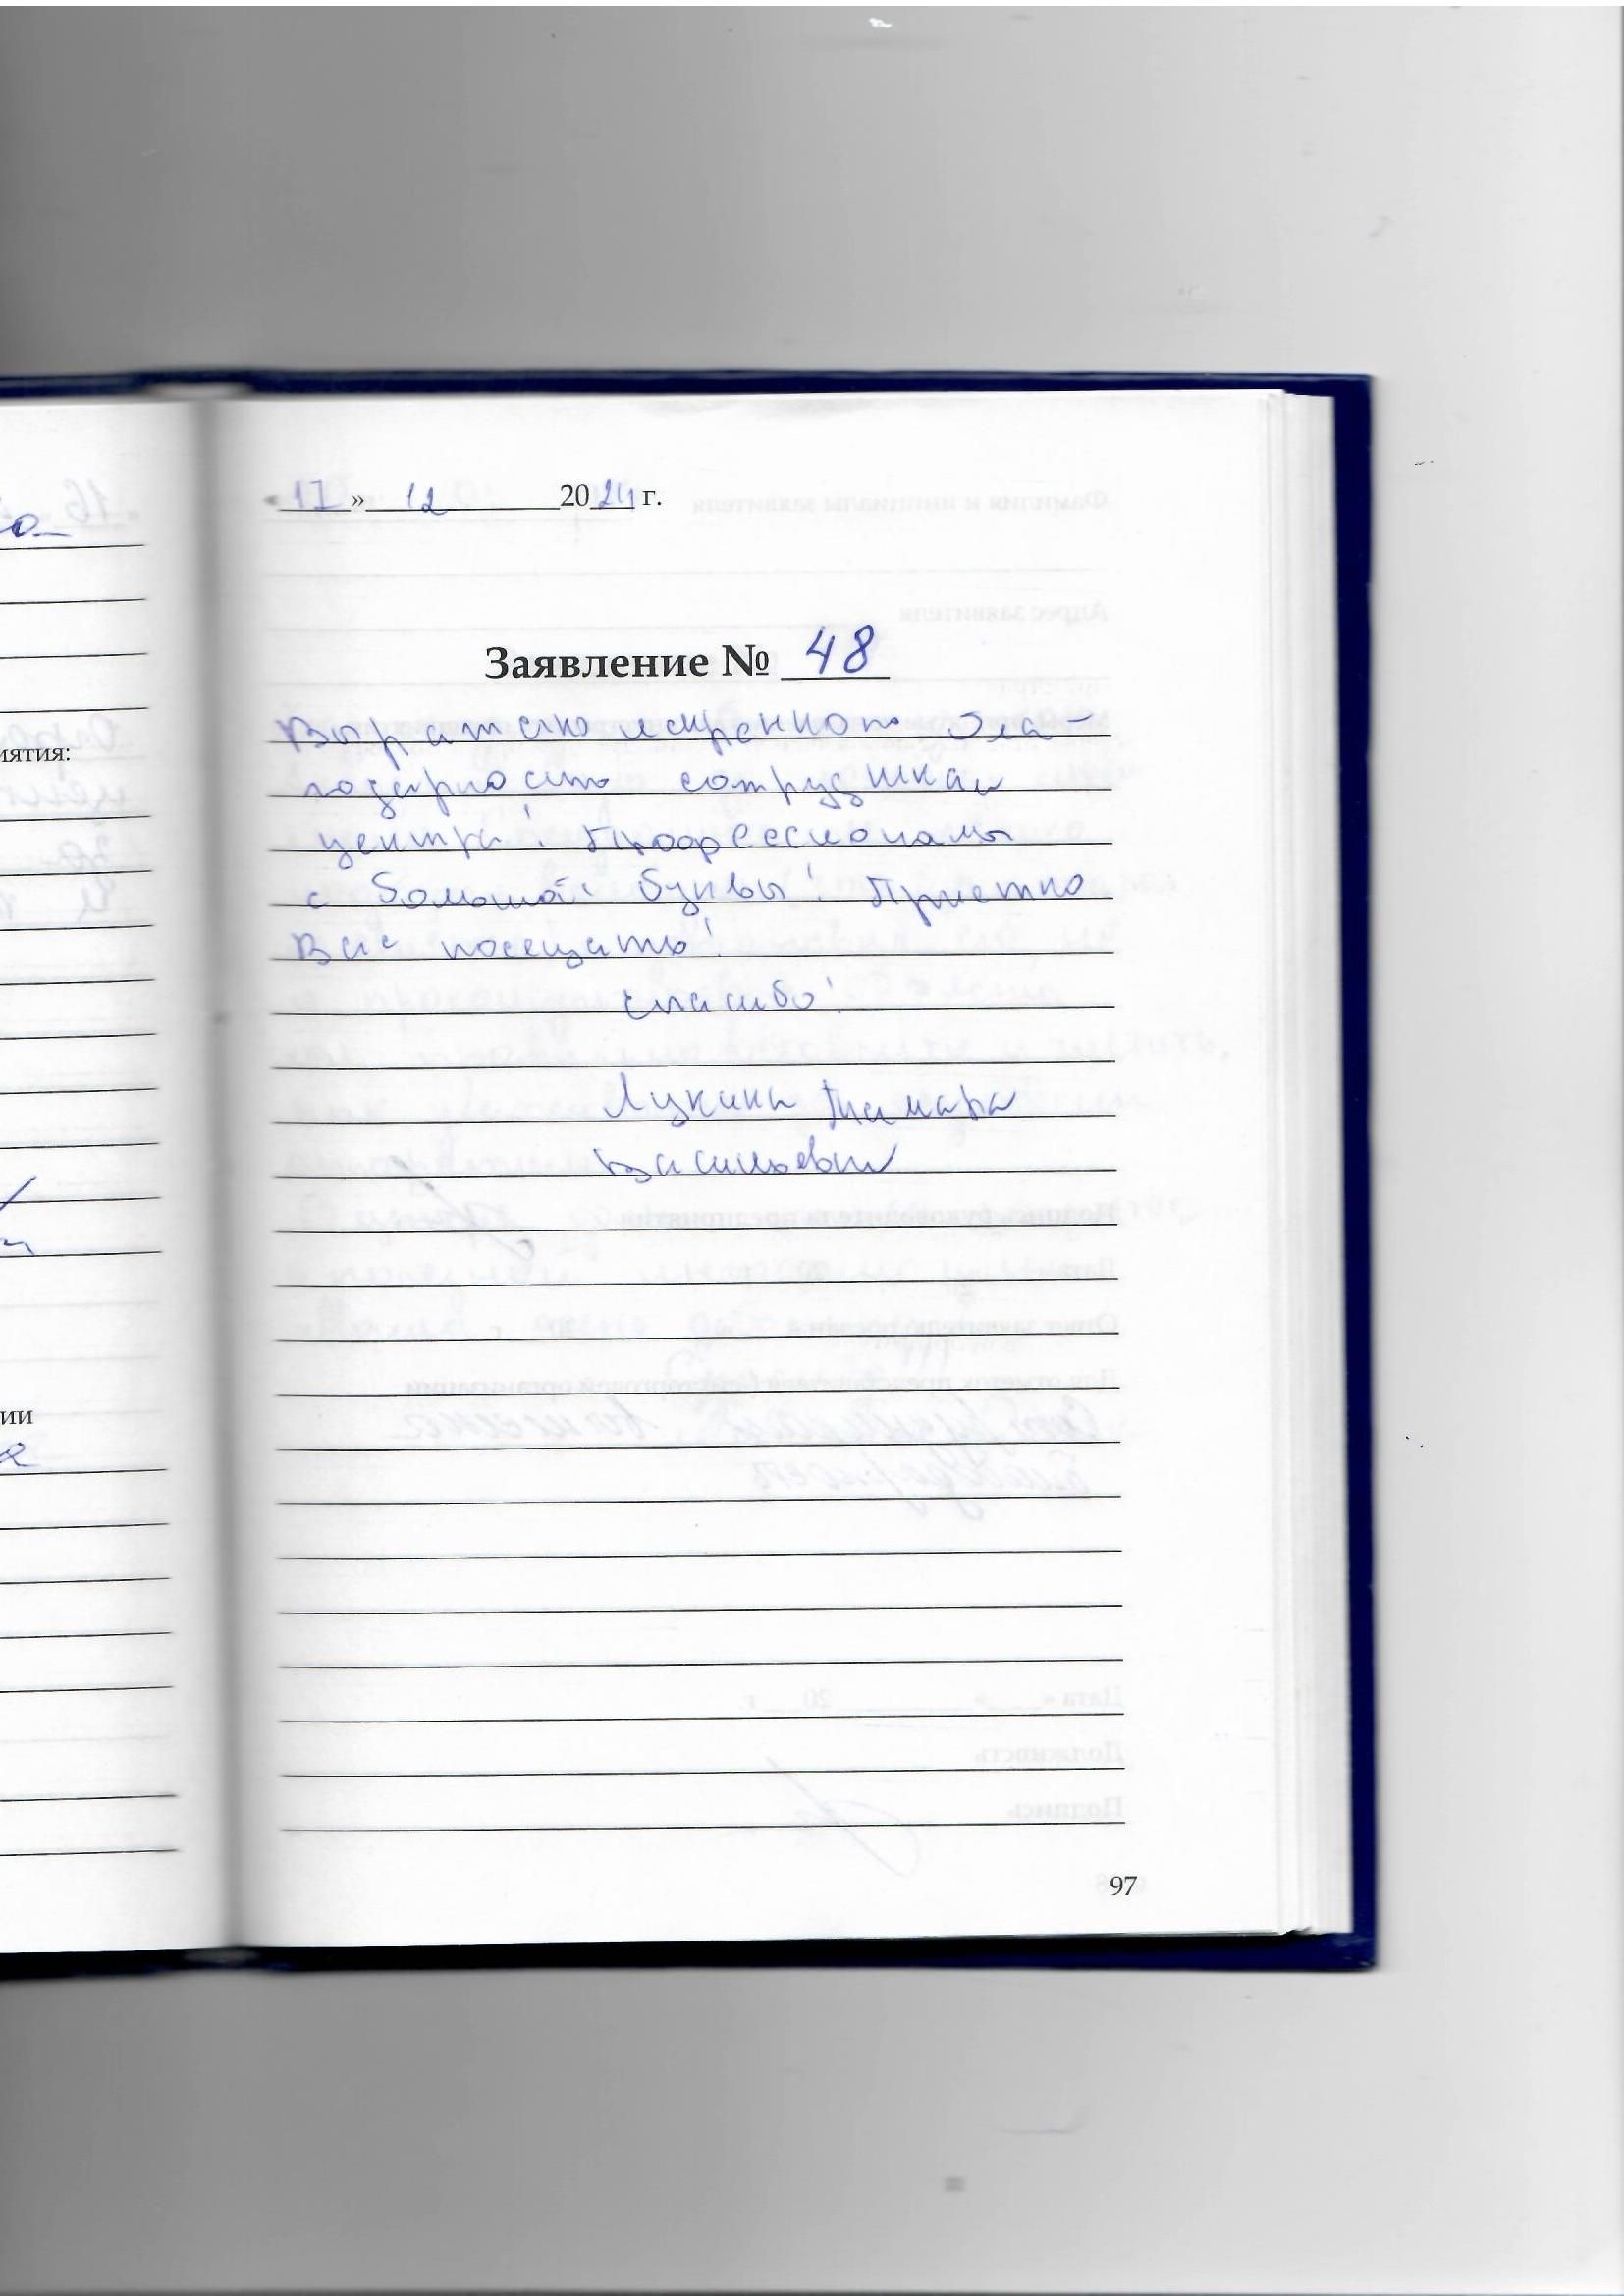 «17» 12 2024 г.
Заявление № 48
Выражаю искреннюю бла-
годарность сотрудникам
центра! Профессионалы
с большой буквы! Приятно
Вас посещать!
Спасибо!
Лукина Тамара
Васильевна
97
иятия:
ии